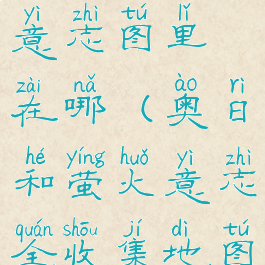 yì zhì tú lǐ
意志图里
zài nǎ ào rì
在哪（奥日
hé yíng huǒ yì zhì
和萤火意志
quán shōu jí dì tú
全收集地图